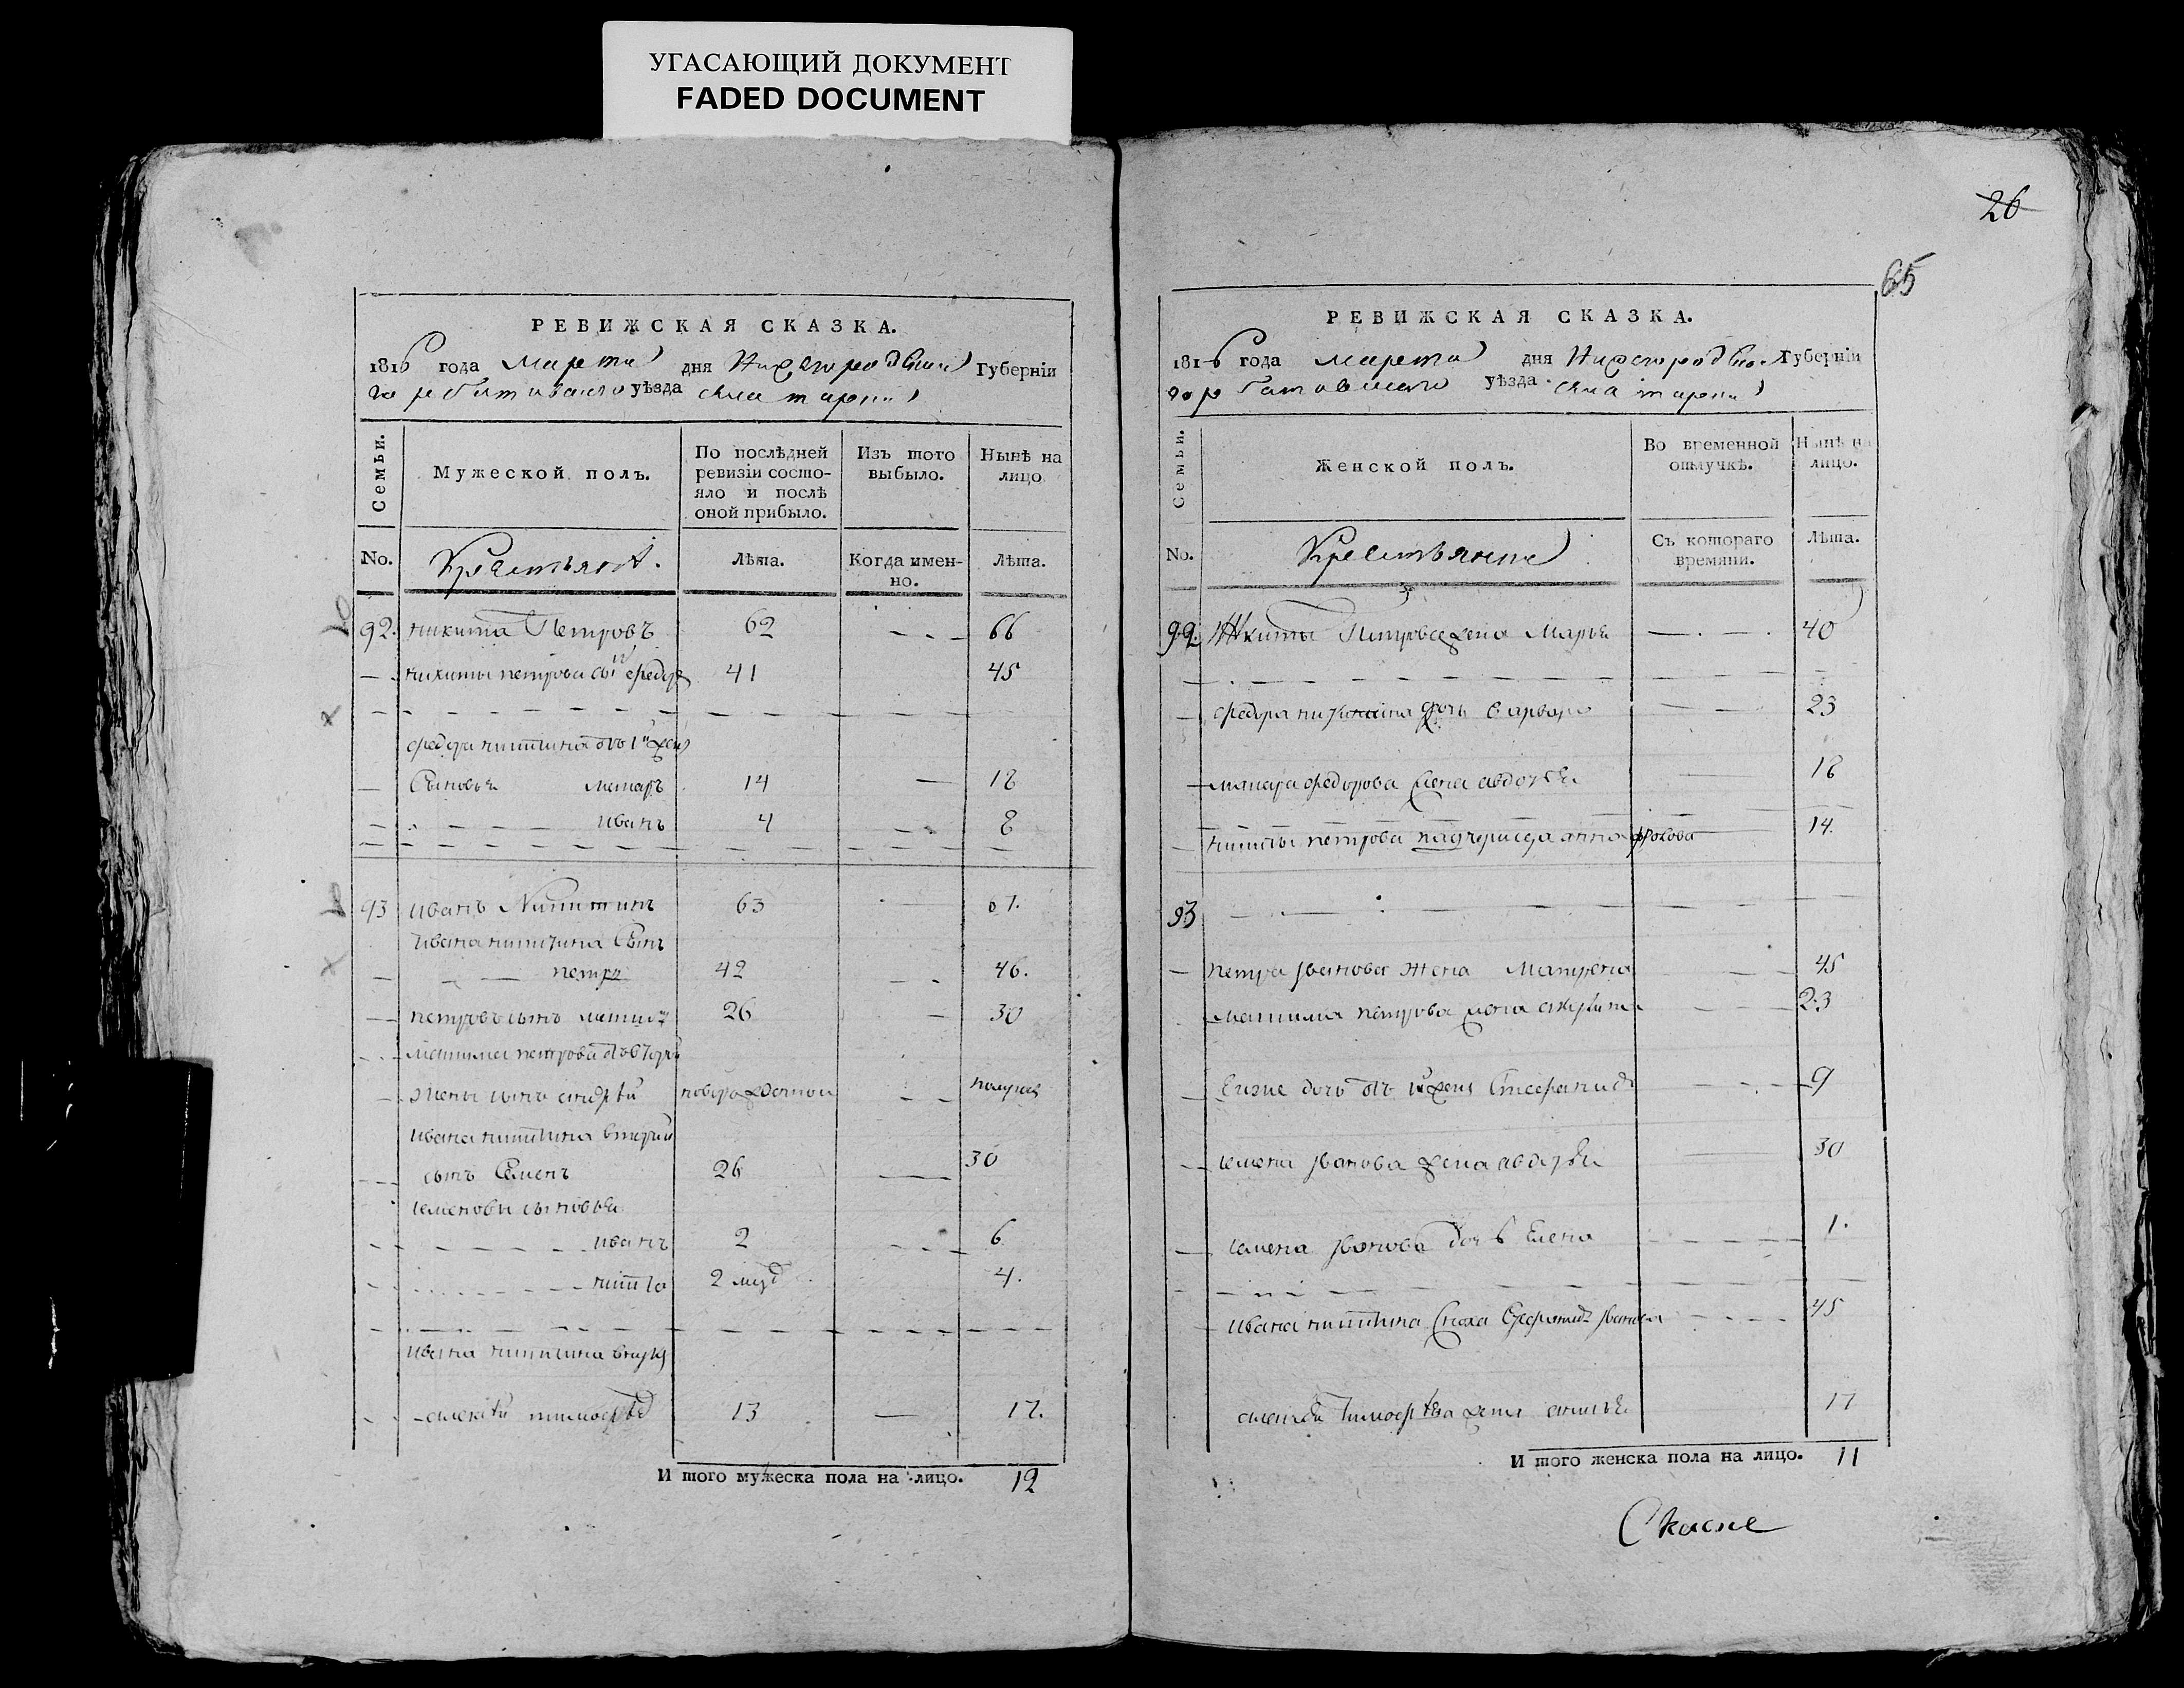 УГАСАЮЩИЙ ДОКУМЕНТ
FADED DOCUMENT
РЕВИЖСКАЯ СКАЗКА.
1816 года Марта дня Нижегородской Губернiи
горбатовскаго уѣзда села
Семьи.
Мужеской полъ.
По послѣдней ревизiи состояло и послѣ оной прибыло.
Изъ того выбыло.
Нынѣ на лицо
No.
Крестьяне.
Лѣта.
Когда именно.
Лѣта.
92. никита Петровъ 62 66
никиты петрова сынъ федоръ 41 45
федора никитина отъ 1й жены
Сыновья макаръ 14 18
иванъ 4 8
93 иванъ Никитинъ 63
ивана никитина Сынъ
петръ 42 46.
петровъ сынъ 26 30
петрова отъ
жены сынъ андрѣй
ивана никитина вторый
сынъ Семенъ 26 30
семеновы сыновья
иванъ 2 6
никита 2 4.
ивана никитина внукъ
алексѣй 13 17.
И того мужеска пола на лицо. 12
26
65
РЕВИЖСКАЯ СКАЗКА.
1816 года марта дня Нижегородской Губернiи
горбатовскаго уѣзда села
Семьи.
Женской полъ.
Во временной отлучкѣ.
Нынѣ на лицо.
No.
Крестьяне
Съ котораго времяни.
Лѣта.
92. Никиты Петрова жена Марья 40
федора никитина дочь варвара 23
макара федорова жена авдотья 18
никиты петрова падчерица анна 14.
93
петра иванова жена Матрена 45
петрова жена 23
дочь отъ жены 9
семена иванова жена авдотья 30
семена иванова дочь Елена 1.
ивана никитина сноха 45
жена 17
И того женска пола на лицо. 11